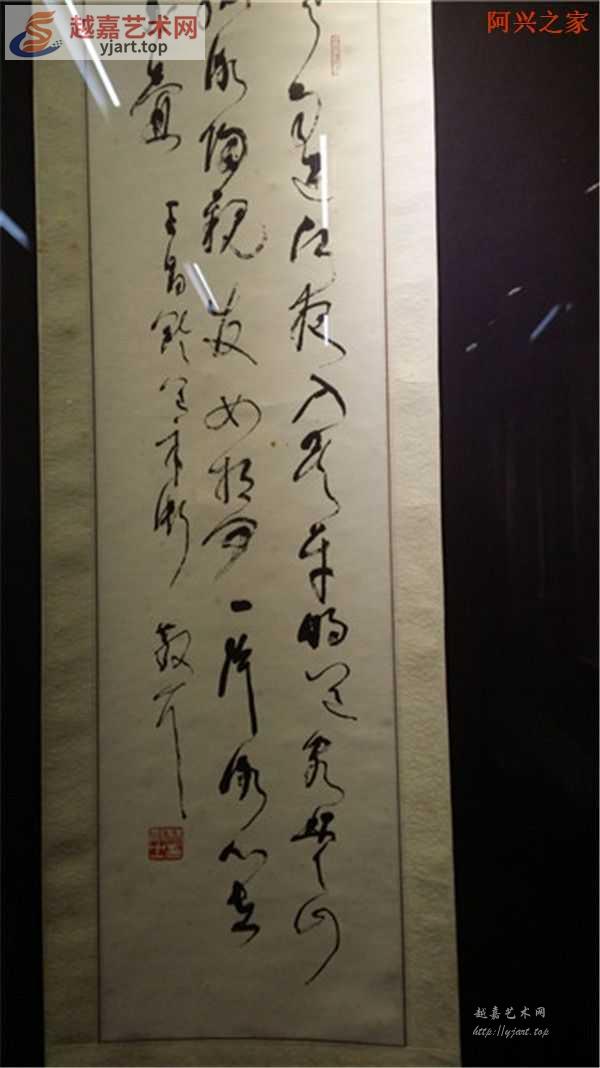 越嘉艺术网
yjart.top
阿兴之家
雨連江夜入吳平明送客楚山
孤洛陽親友如相問一片冰心在
壺
王昌齡送辛漸
散耳
越嘉艺术网
http://yjart.top